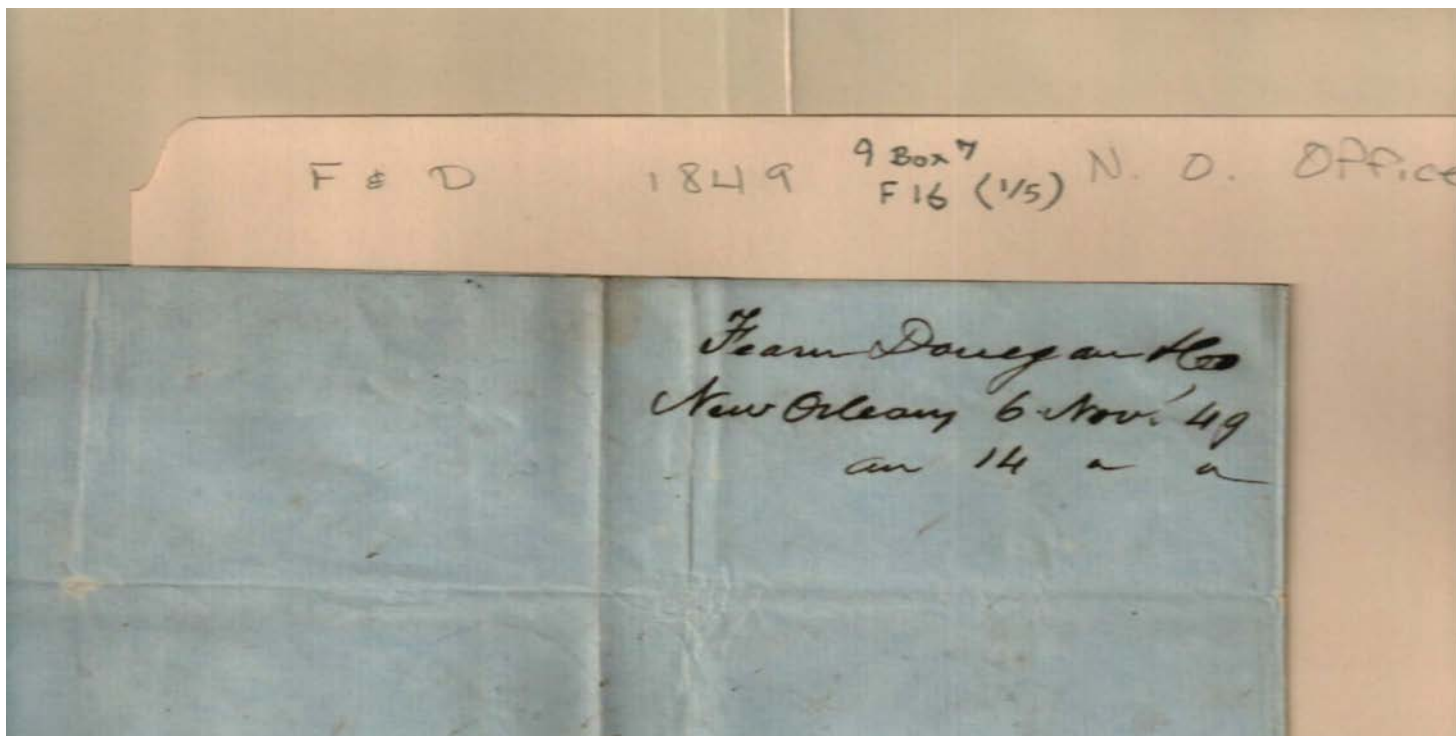 F & D 1849 9 Box 7 N. O. Office
F 16 (1/5)
Fearn Donegan & Co
New Orleans 6 Nov. '49
an 14 " "